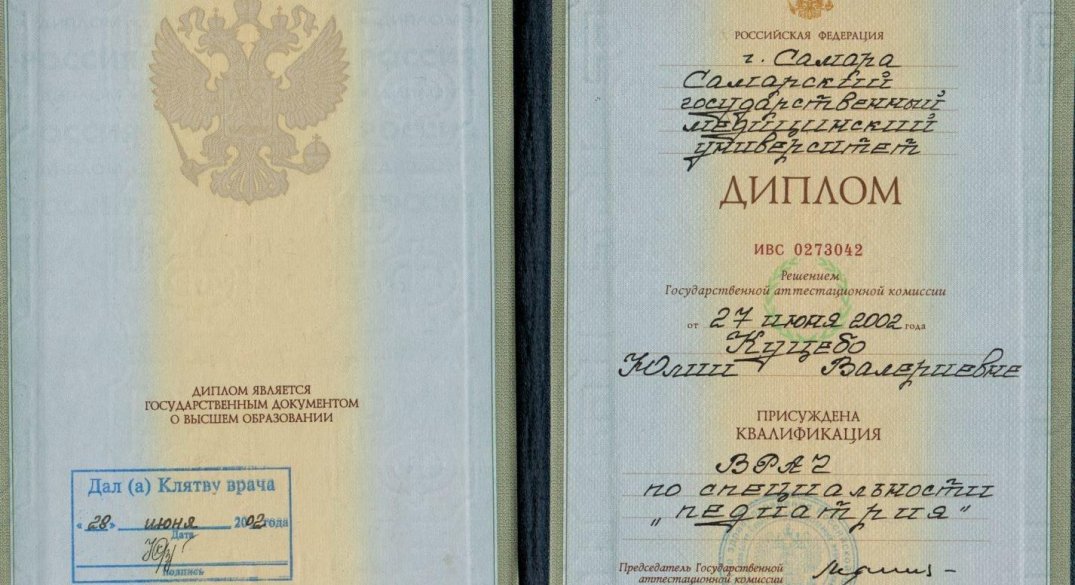 ДИПЛОМ ЯВЛЯЕТСЯ
ГОСУДАРСТВЕННЫМ ДОКУМЕНТОМ
О ВЫСШЕМ ОБРАЗОВАНИИ
Дал (а) Клятву врача
"28" июня 2002 года
Дата
Подпись
РОССИЙСКАЯ ФЕДЕРАЦИЯ
г. Самара
Самарский
государственный
медицинский
университет
ДИПЛОМ
ИВС 0273042
Решением
Государственной аттестационной комиссии
от 27 июня 2002 года
Куцебо
Юлии Валериевне
ПРИСУЖДЕНА
КВАЛИФИКАЦИЯ
ВРАЧ
по специальности
"педиатрия"
Председатель Государственной
аттестационной комиссии